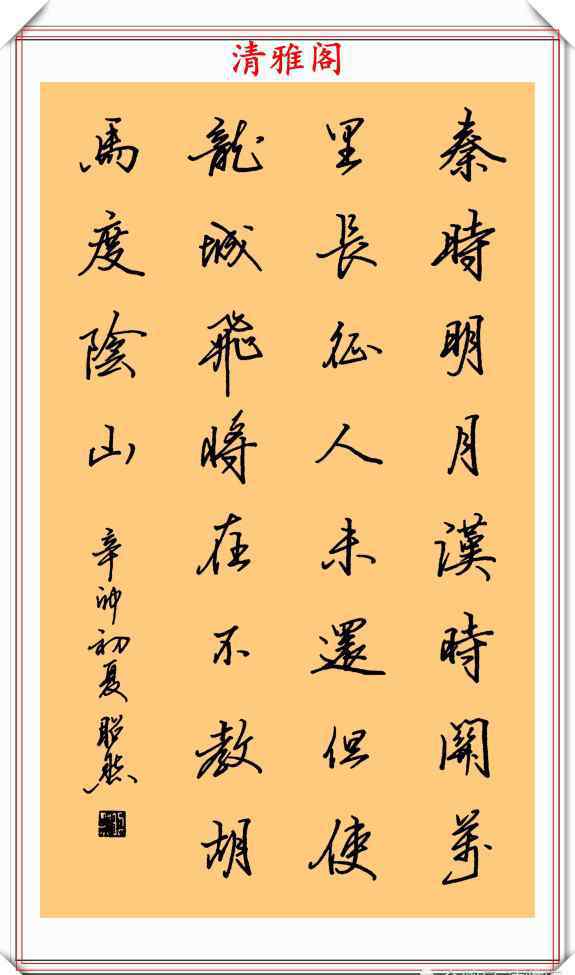 清雅阁
秦時明月漢時關萬
里長征人未還但使
龍城飛將在不教胡
馬度陰山
辛卯初夏